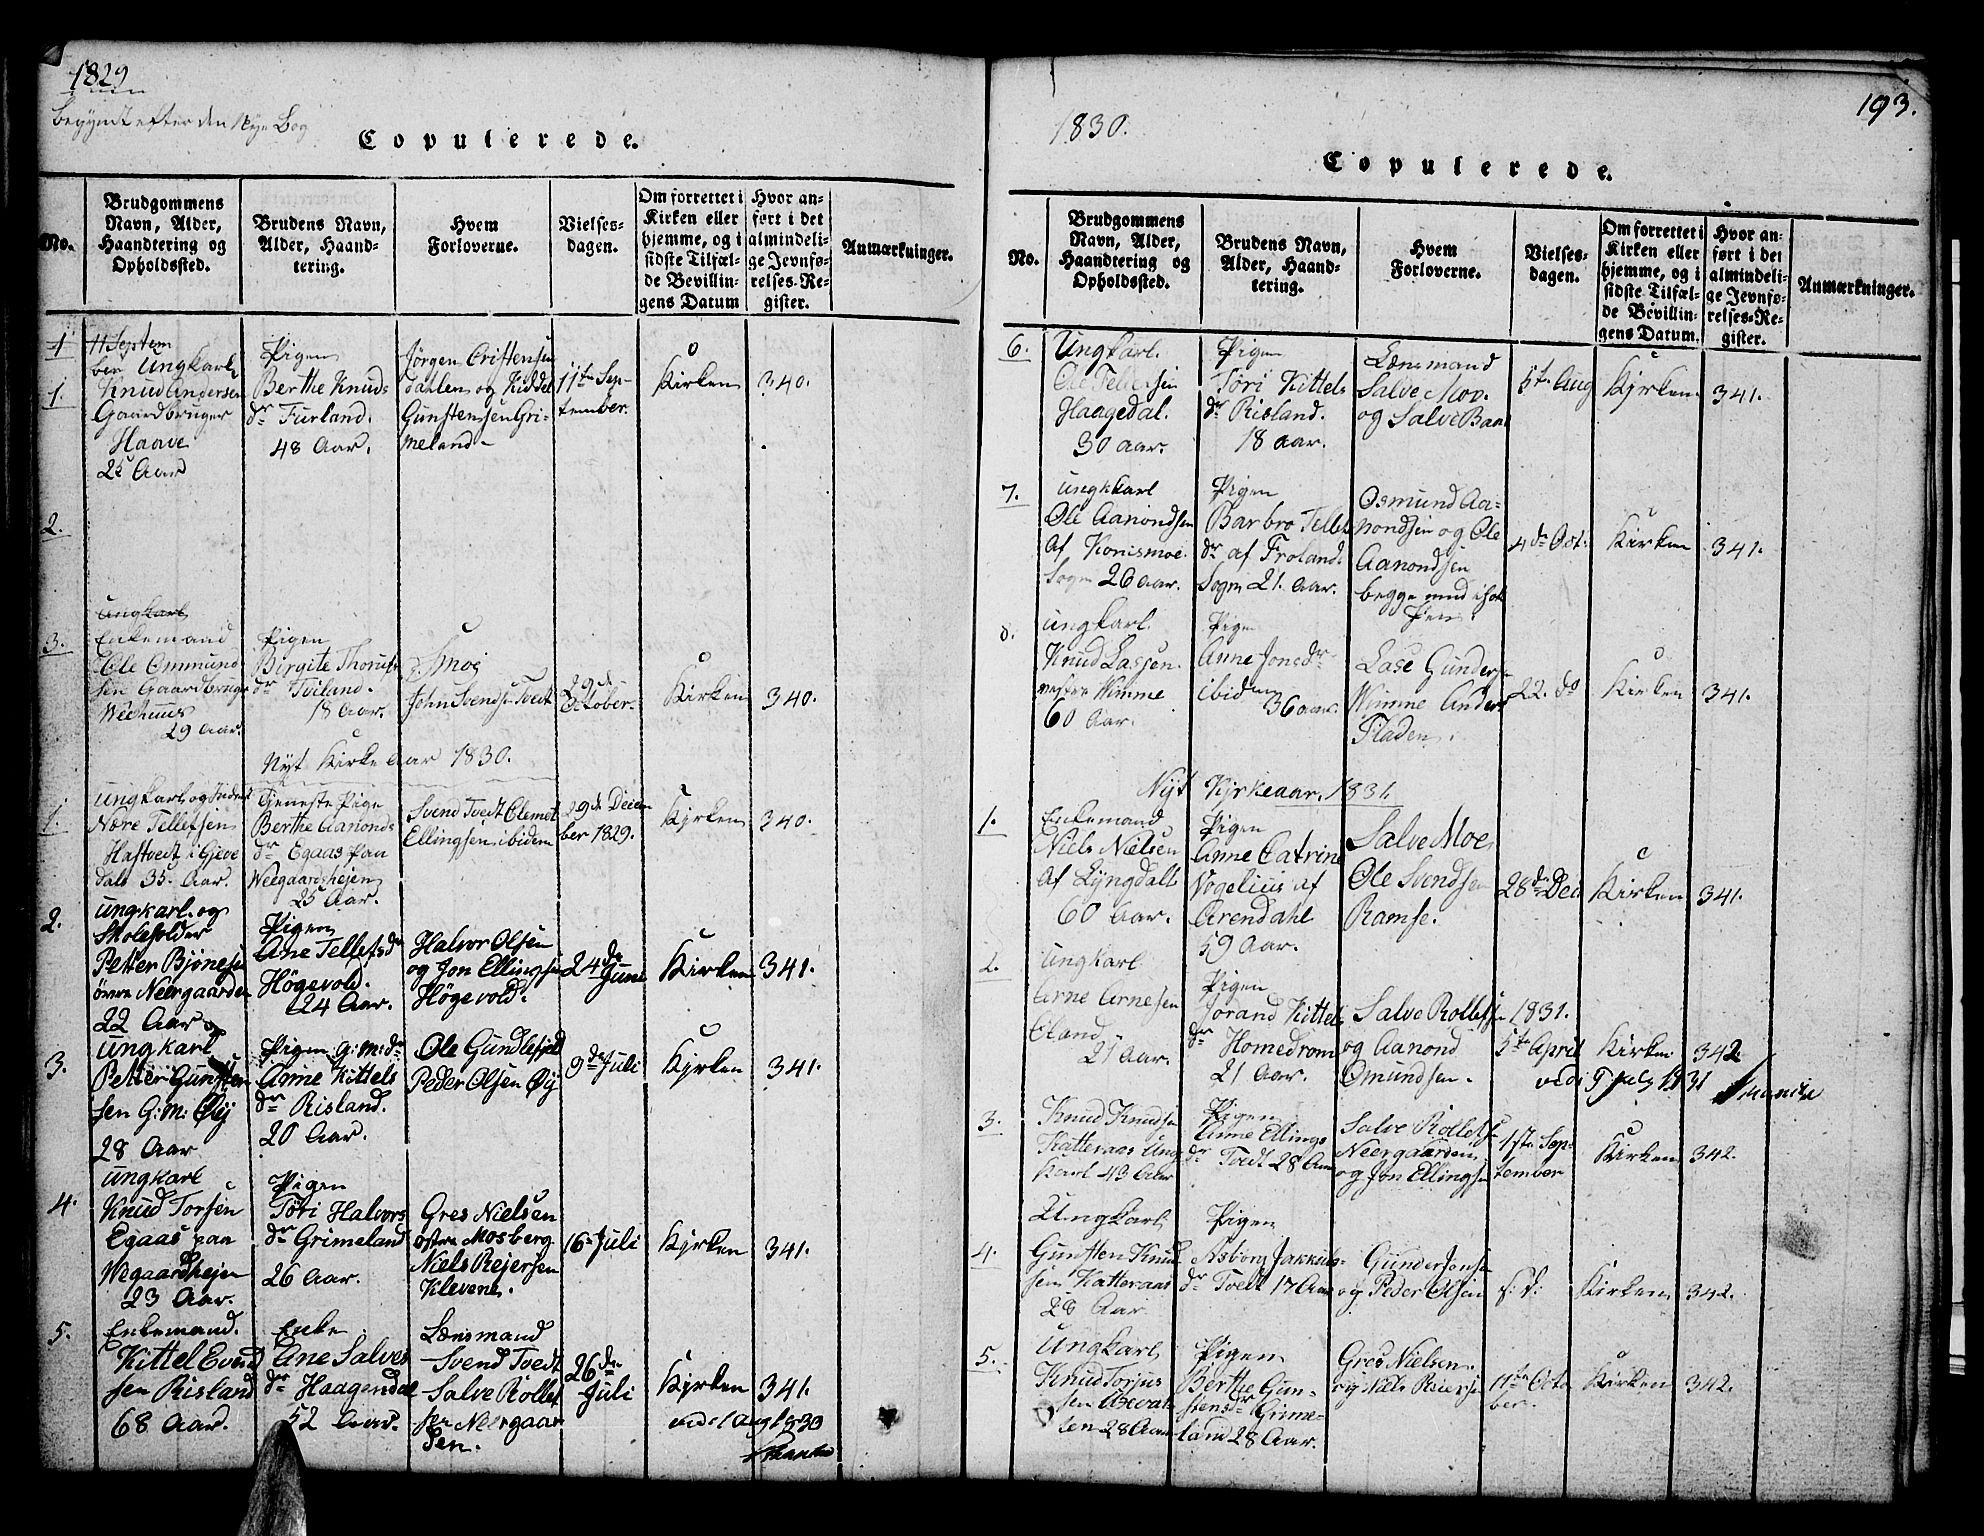 1829
begyndt efter den Nye Bog
Copulerede.
No.
Brudgommens
Navn, Alder,
Haandtering og
Opholdssted.
Brudens Navn,
Alder, Haand-
tering.
Hvem
Forloverne.
Vielses-
dagen.
Om forrettet i
Kirken eller
hjemme, og i
sidste Tilfæl-
de Bevillin-
gens Datum
Hvor an-
ført i det
almindeli-
ge Jevnfø-
relses-Re-
gister.
Anmærkninger.
1
11 Septem
ber Ungkarl
1.
Knud Andersen
Gaardbruger
Haave
25 Aar
Pigen
Berthe Knuds
dr Furland.
48 Aar.
Jørgen Cristensen
dalen og Kiddel
Gunstensen Gri-
meland
11te Sep-
tember.
Kirken
340.
2.
3.
Ungkarl
Enkemand
Ole Ommund
sen Gaardbruger
29 Aar.
Pigen
Birgite
dr Tviland.
18 Aar.
John Svendsen Tvedt
29de
October.
Kirken
340.
Nyt Kirke Aar 1830.
1.
Ungkarl og
Nære Tellefsen
Haftvedt i Gjeve
dals 35. Aar.
Tjeneste Pige
Berthe Aanonds
dr Egaas paa
Weegaardshejen
25 Aar.
Svend Tvedt Clemet
Ellingsen ibidem
29de Decem
ber 1829.
Kjrken
340.
2.
Ungkarl og
Skoleholder
Petter Bjønesen
övere Neergaarden
22 Aar
Pigen
Ane Tellefsdr
Högevold.
24 Aar.
Halvor Olsen
og Jon Ellingsen
Högevold.
24de
Juni
Kirken
341.
3.
Ungkarl
Petter Gunsten
sen G: M: Øij
28 Aar
Pigen G: M: dr
Anne Kittels
dr Risland.
20 Aar.
Ole Gundlefjeld
Peder Olsen Øij
9de Juli
Kjrken
341.
4.
Ungkarl
Knud Torsen
Egaas paa
Wegaardhejen
23 Aar.
Pigen
Töri Halvors
dr Grimeland
26 Aar.
Gres Nielsen
östre Mosberg
Niels Rejersen
Klevene.
16 Juli
Kjrken
341.
5.
Enkemand.
Kittel Evind
sen Risland
68 Aar.
Enke
Ane Salves
dr Haagendal
52 Aar.
Lænsmand
Svend Tvedt
Salve Rollef
sen Neergaar
den.
26de
Juli
Kjrken
341.
1830
193.
1830.
Copulerede.
No.
Brudgommens
Navn, Alder,
Haandtering og
Opholdssted.
Brudens Navn,
Alder, Haand-
tering.
Hvem
Forloverne.
Vielses-
dagen.
Om forrettet i
Kirken eller
hjemme, og i
sidste Tilfæl-
de Bevillin-
gens Datum.
Hvor an-
ført i det
almindeli-
ge Jevnfø-
relses-Re-
gister.
Anmærkninger.
6.
Ungkarl.
Ole Tellefsen
Haagedal.
30 aar.
Pigen
Töri Kittels
dr Risland.
18 aar.
Lænsmand
Salve Moe.
og Salve
5te Aug
Kjrken
341.
7.
Ungkarl
Ole Aanondsen
Af Konismoe
Sogn 26 aar.
Pigen
Barbro Tellefs
dr af Froland
Sogn 21. Aar.
Osmund Aa-
nondsen og Ole
Aanondsen
begge
4de Oct.
Kirken
341.
8.
Ungkarl.
Knud Lassen
Wimme
60 Aar.
Pige
Anne Jonsdr
ibidem
36 aar.
Lase Gunders
Wimme Anders
Fladen.
22. do
Kirken
341.
Nyt Kjrkeaar. 1831.
1.
Enkemand
Niels Nielsen
af Lyngdals
60 Aar.
Pigen
Anne Catrine
Vogelius af
Arendahl
59 Aar.
Salve Moe
Ole Svendsen
Ramse.
28de Dec
Kirken
341.
2.
Ungkarl
Arne Arnesen
Eland
27 Aar.
Pigen
Jorand Kittels
dr Homedrom
21 Aar.
Salve Rollefsen
og Aanond
Omundsen
1831.
5te April
Kirken
342.
1831
3.
Knud Knudsen
Katteraas Ung
karl 43 Aar
Pigen
Anne Ellings
dr Tvedt 28 Aar
Salve Rollefs
Neergaarden
og Jon Ellingsen
1ste Sep-
tember
Kirken
342.
4.
Ungkarl
Gunsten Knud
sen Katteraas
28 Aar
Pigen
Asborg
dr Tvedt 17 Aar
Gunder Jonsen
og Peder Olsen
Kirken
342.
5.
Ungkarl
Knud Torjus
sen
28 Aar
Pigen
Berthe Gun-
stensdr Grime-
land 28 Aar.
Gres Nielsen
og Niels Reiersen
11te Octo
ber.
Kirken
342.